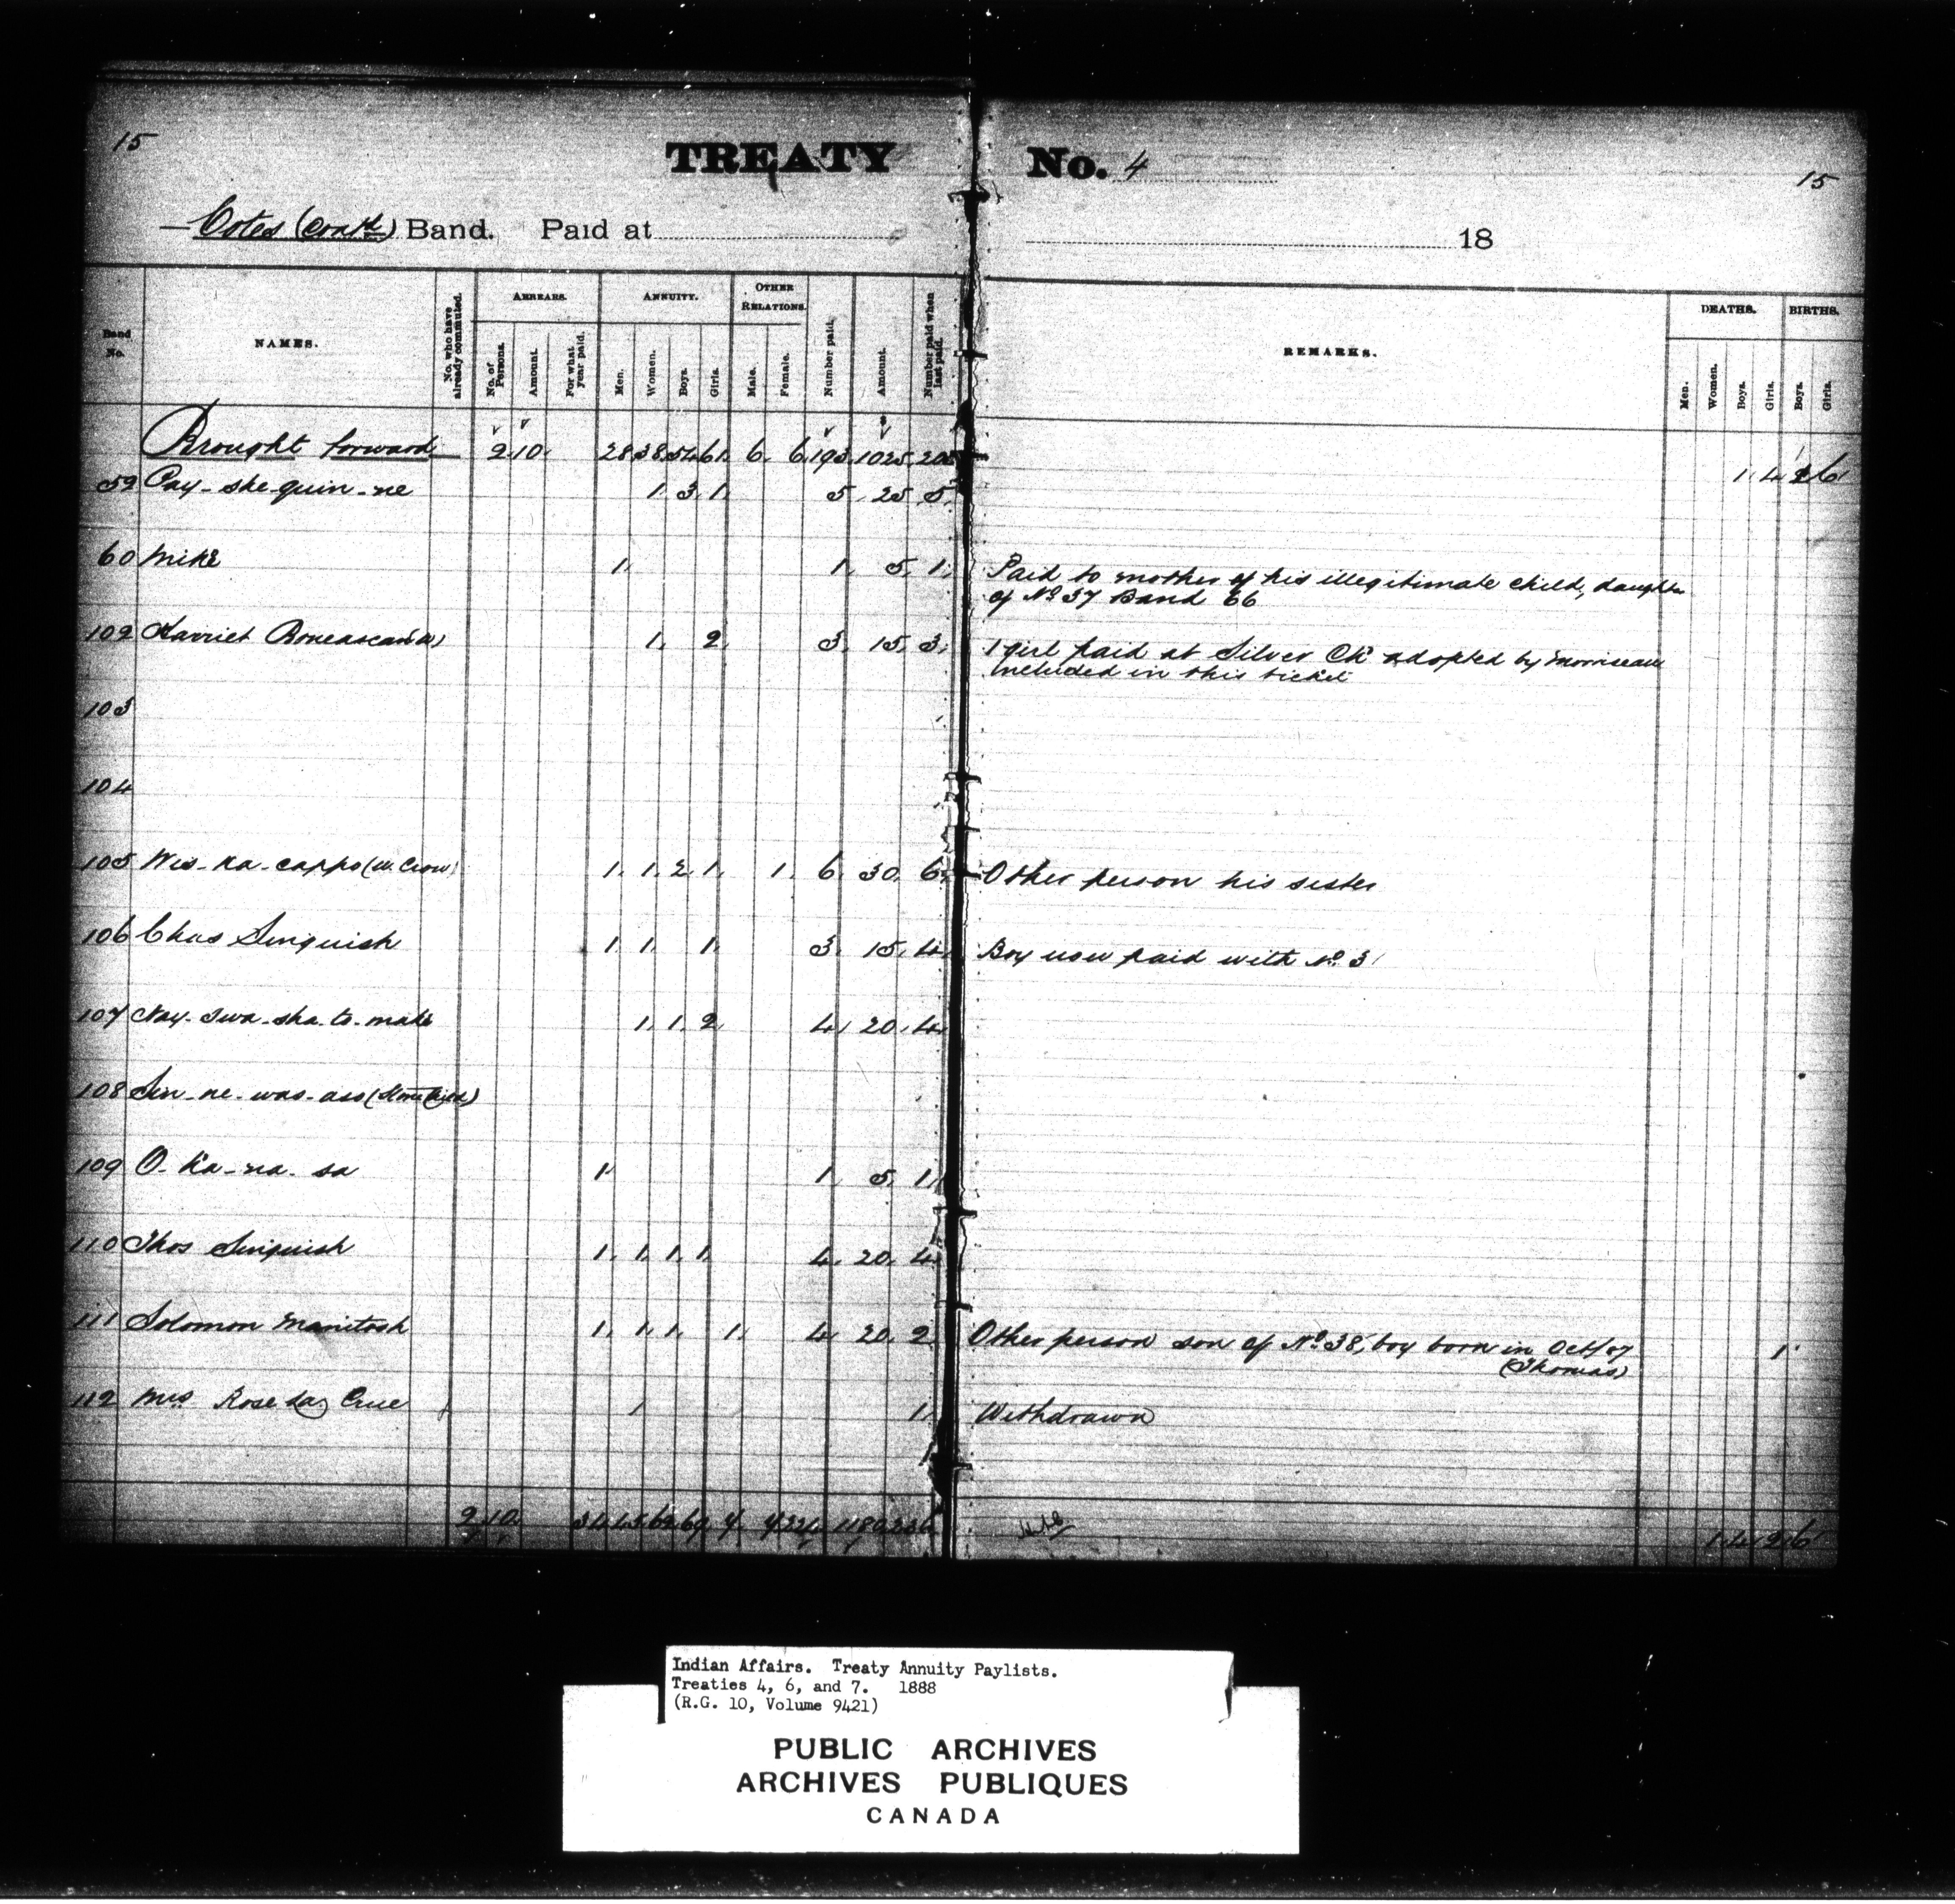 15
TREATY No. 4
15
Cotes (Contd) Band. Paid at 18
Band No.
NAMES.
No. who have already commuted.
ARREARS.
No. of Persons.
Amount.
For what year paid.
ANNUITY.
Men.
Women.
Boys.
Girls.
OTHER RELATIONS.
Male.
Female.
Number paid.
Amount.
Number paid when last paid.
REMARKS.
DEATHS.
Men.
Women.
Boys.
Girls.
BIRTHS.
Boys.
Girls.
Brought forward 2 10 28 38 54 61 6 6 193 1025 1 4 6
59 Pay-she-quin-ne 1 3 1 5 25 5
60 Mike 1 1 5 1 Paid to mother of his illegitimate child, daughter
of No 37 Band 66
102 Harriet 1 2 3 15 3 1 girl paid at Silver Ck adopted by Morriseau
Included in this ticket
103
104
105 Wis-ka-cappo (W. Crow) 1 1 2 1 1 6 30 6 Other person his sister
106 Chas Sinquish 1 1 1 3 15 4 Boy now paid with No 31
107 Nay-swa-sha-to-make 1 1 2 4 20 4
108 Sin-ne-was-ass (Stone Child)
109 O-ka-na-sa 1 1 5 1
110 Thos Sinquish 1 1 1 1 4 20 4
111 Solomon Manitosh 1 1 1 1 4 20 2 Other person son of No 38, boy born in Oct/87 1
(Thomas)
112 Mrs Rose La Crue 1 1 Withdrawn
2 10 34 45 62 69 7 7 224 1180 1 4 2 6
Indian Affairs. Treaty Annuity Paylists.
Treaties 4, 6, and 7. 1888
(R.G. 10, Volume 9421)
PUBLIC ARCHIVES
ARCHIVES PUBLIQUES
CANADA